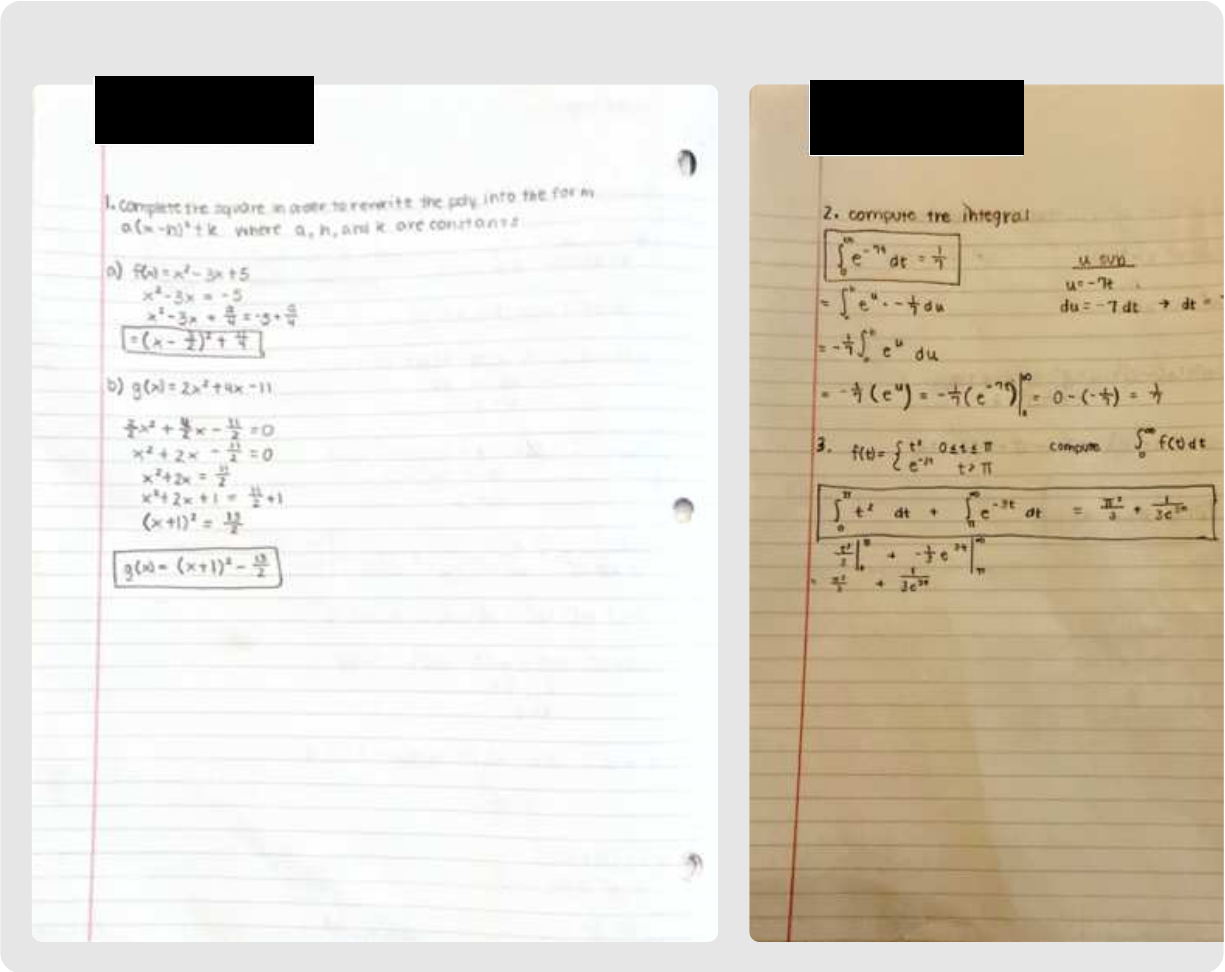 1. complete the square in order to rewrite the poly into the form
a(x-h)² + k where a, h, and k are constants
a) f(x) = x² - 3x + 5
x² - 3x = -5
x² - 3x + 9/4 = -5 + 9/4
= (x - 3/2)² + 11/4
b) g(x) = 2x² + 4x - 11
2/2 x² + 4/2 x - 11/2 = 0
x² + 2x - 11/2 = 0
x² + 2x = 11/2
x² + 2x + 1 = 11/2 + 1
(x+1)² = 13/2
g(x) = (x+1)² - 13/2
2. compute the integral
∫₀^∞ e^(-7t) dt = 1/7
u sub
u = -7t
= ∫₀^∞ e^u · -1/7 du
du = -7 dt → dt =
= -1/7 ∫₀^∞ e^u du
= -1/7 (e^u) = -1/7 (e^(-7t)) |₀^∞ = 0 - (-1/7) = 1/7
3. f(t) = { t² 0 ≤ t ≤ π compute ∫₀^∞ f(t) dt
e^(-3t) t > π
∫₀^π t² dt + ∫_π^∞ e^(-3t) dt = π³/3 + 1/(3e^(3π))
t³/3 |₀^π + -1/3 e^(3t) |_π^∞
= π³/3 + 1/(3e^(3π))